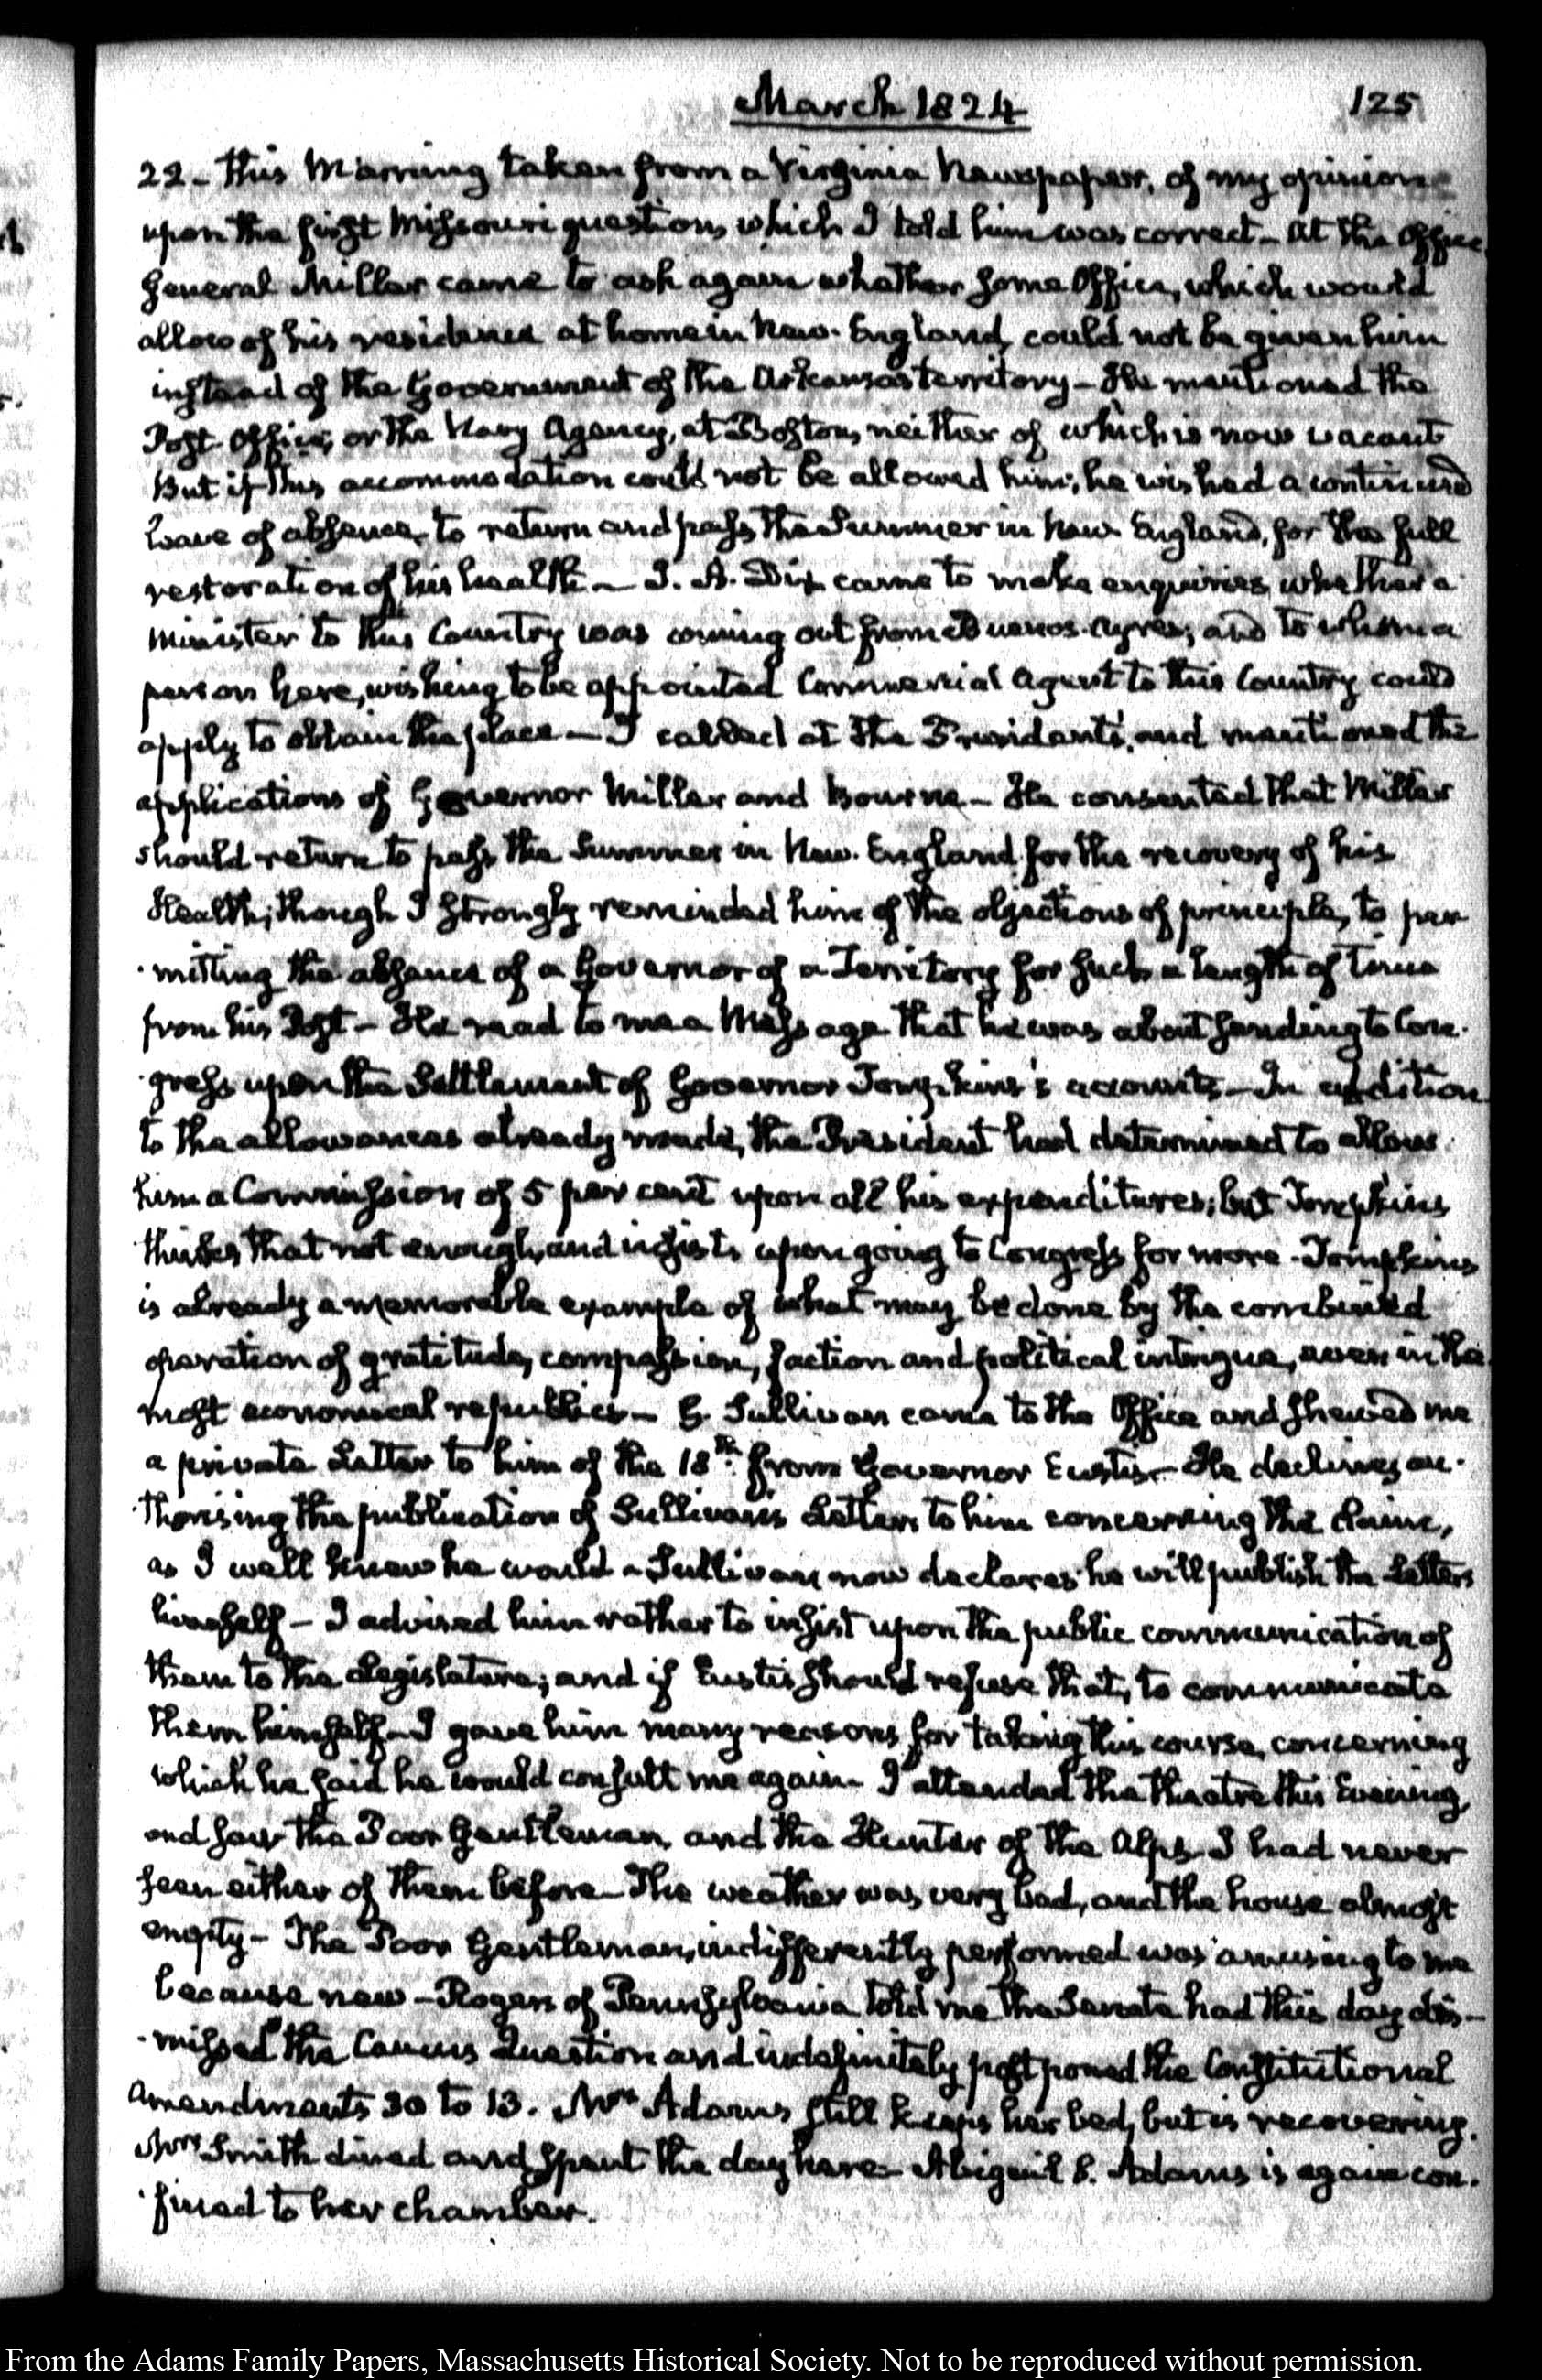 March 1824
125
22 - this Morning taken from a Virginia Newspaper, of my opinion
upon the first Missouri question, which I told him was correct - At the Office
General Miller came to ask again whether some Office, which would
allow of his residence at home in New-England, could not be given him
instead of the Government of the Arkansas territory - He mentioned the
Post-Office, or the Navy Agency, at Boston, neither of which is now vacant
But if this accommodation could not be allowed him, he wished a continued
leave of absence, to return and pass the Summer in New-England, for the full
restoration of his health - J. A. Dix came to make enquiries whether a
Minister to this Country was coming out from Buenos-Ayres; and to whom a
person here, wishing to be appointed Commercial Agent to this Country could
apply to obtain the place - I called at the President's, and mentioned the
applications of Governor Miller and Bourne - He consented that Miller
should return to pass the Summer in New-England for the recovery of his
Health; though I strongly reminded him of the objections of principle, to per
-mitting the absence of a Governor of a Territory for such a length of time
from his Post - He read to me a Message that he was about sending to Con-
-gress upon the Settlement of Governor Tompkins's accounts - In addition
to the allowances already made, the President had determined to allow
him a Commission of 5 per cent upon all his expenditures; but Tompkins
thinks that not enough, and insists upon going to Congress for more - Tompkins
is already a memorable example of what may be done by the combined
operation of gratitude, compassion, faction and political intrigue, even in the
most economical republics - G. Sullivan came to the Office and shewed me
a private Letter to him of the 18th. from Governor Eustis - He declines au-
-thorising the publication of Sullivan's Letters to him concerning the Claim,
as I well knew he would - Sullivan now declares he will publish the Letters
himself - I advised him rather to insist upon the public communication of
them to the Legislature; and if Eustis should refuse that, to communicate
them himself - I gave him many reasons for taking this course, concerning
which he said he would consult me again - I attended the theatre this Evening,
and saw the Poor Gentleman, and the Hunter of the Alps - I had never
seen either of them before - The weather was very bad, and the house almost
empty - The Poor Gentleman, indifferently performed was amusing to me
because new - Rogers of Pennsylvania told me the Senate had this day dis-
-missed the Caucus Question and indefinitely postponed the Constitutional
Amendments 30 to 13. Mrs Adams still keeps her bed, but is recovering.
Mrs Smith dined and spent the day here - Abigail S. Adams is again con-
-fined to her chamber.
From the Adams Family Papers, Massachusetts Historical Society. Not to be reproduced without permission.